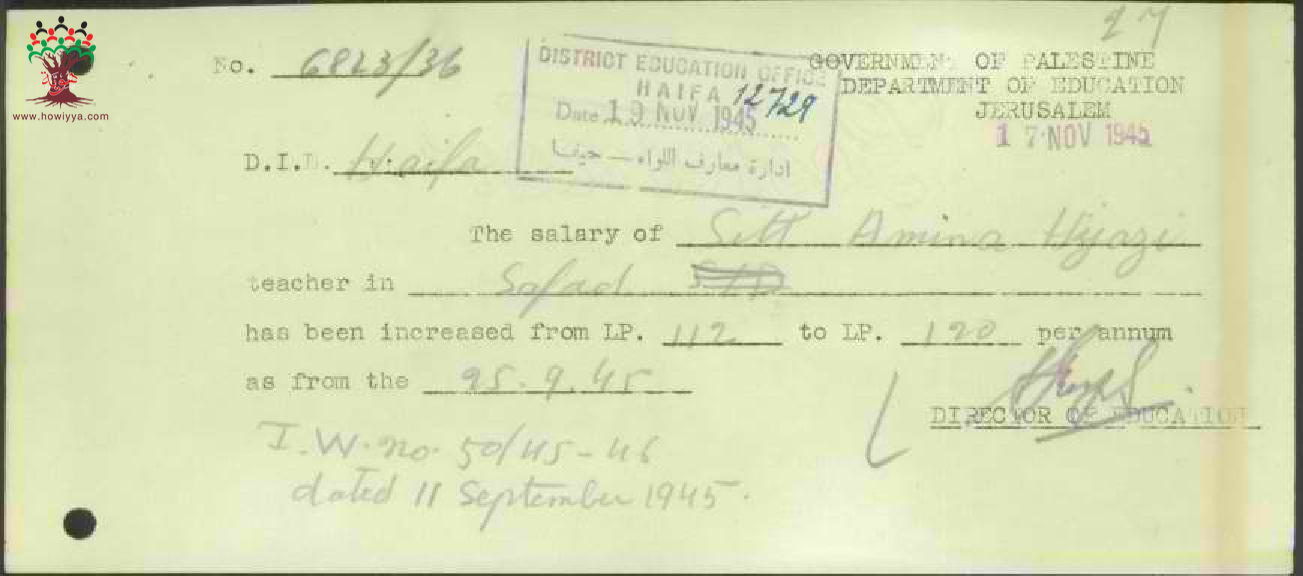 27
www.howiyya.com
No. 6823/36
GOVERNMENT OF PALESTINE
DEPARTMENT OF EDUCATION
JERUSALEM
17 NOV 1945
DISTRICT EDUCATION OFFICE
HAIFA 12729
Date 19 NOV 1945
ادارة معارف اللواء — حيفا
D.I.E. Haifa
The salary of Sitt Amina Hijazi
teacher in Safad
has been increased from LP. 112 to LP. 120 per annum
as from the 25.9.45
DIRECTOR OF EDUCATION
I.W. no. 50/45-46
dated 11 September 1945.